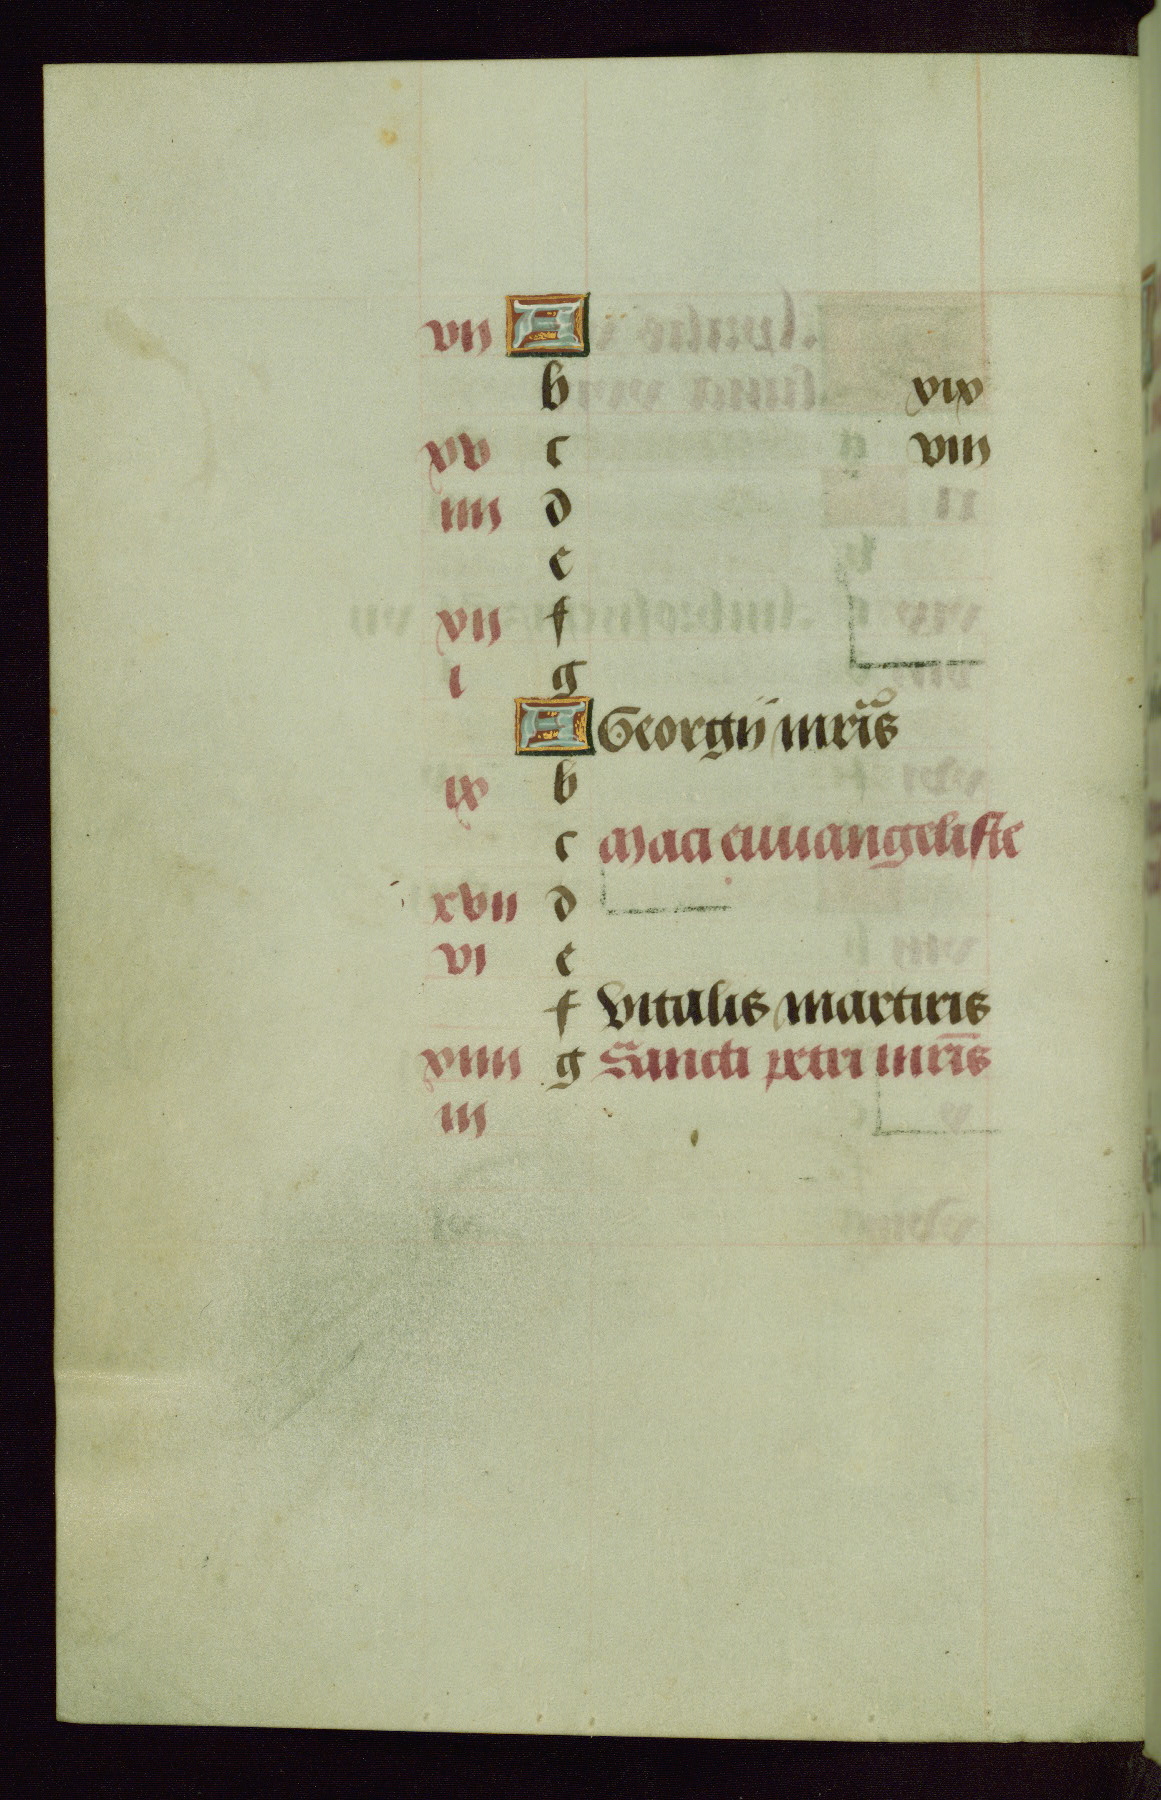 vii A
b xix
xv c viii
iiii d
e
xii f
i g
A Georgii mr̄is
ix b
c Maci euuangeliste
xvii d
vi e
f Vitalis martiris
xiiii g Sancti petri mr̄is
iii